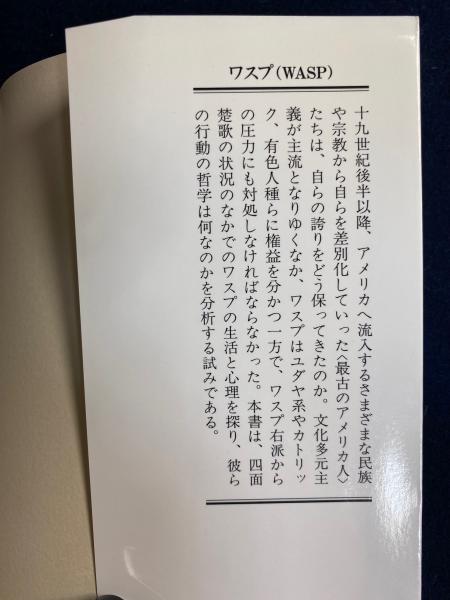 ワスプ(WASP)
十九世紀後半以降、アメリカへ流入するさまざまな民族
や宗教から自らを差別化していった〈最古のアメリカ人〉
たちは、自らの誇りをどう保ってきたのか。文化多元主
義が主流となりゆくなか、ワスプはユダヤ系やカトリッ
ク、有色人種らに権益を分かつ一方で、ワスプ右派から
の圧力にも対処しなければならなかった。本書は、四面
楚歌の状況のなかでのワスプの生活と心理を探り、彼ら
の行動の哲学は何なのかを分析する試みである。